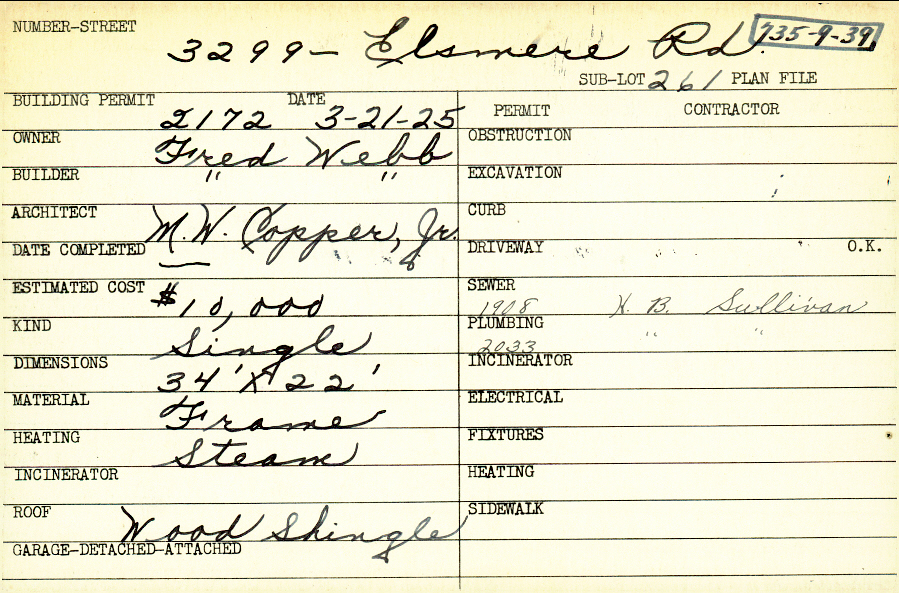 NUMBER-STREET 3299- Elsmere Rd. 735-9-39
SUB-LOT 261 PLAN FILE
BUILDING PERMIT 2172 DATE 3-21-25 PERMIT CONTRACTOR
OWNER Fred Webb OBSTRUCTION
BUILDER " " EXCAVATION
ARCHITECT M.W. Copper, Jr. CURB
DATE COMPLETED — DRIVEWAY O.K.
ESTIMATED COST $10,000 SEWER 1908 H. B. Sullivan
KIND Single PLUMBING 2033 " "
DIMENSIONS 34' X 22' INCINERATOR
MATERIAL Frame ELECTRICAL
HEATING Steam FIXTURES
INCINERATOR HEATING
ROOF Wood Shingle SIDEWALK
GARAGE-DETACHED-ATTACHED